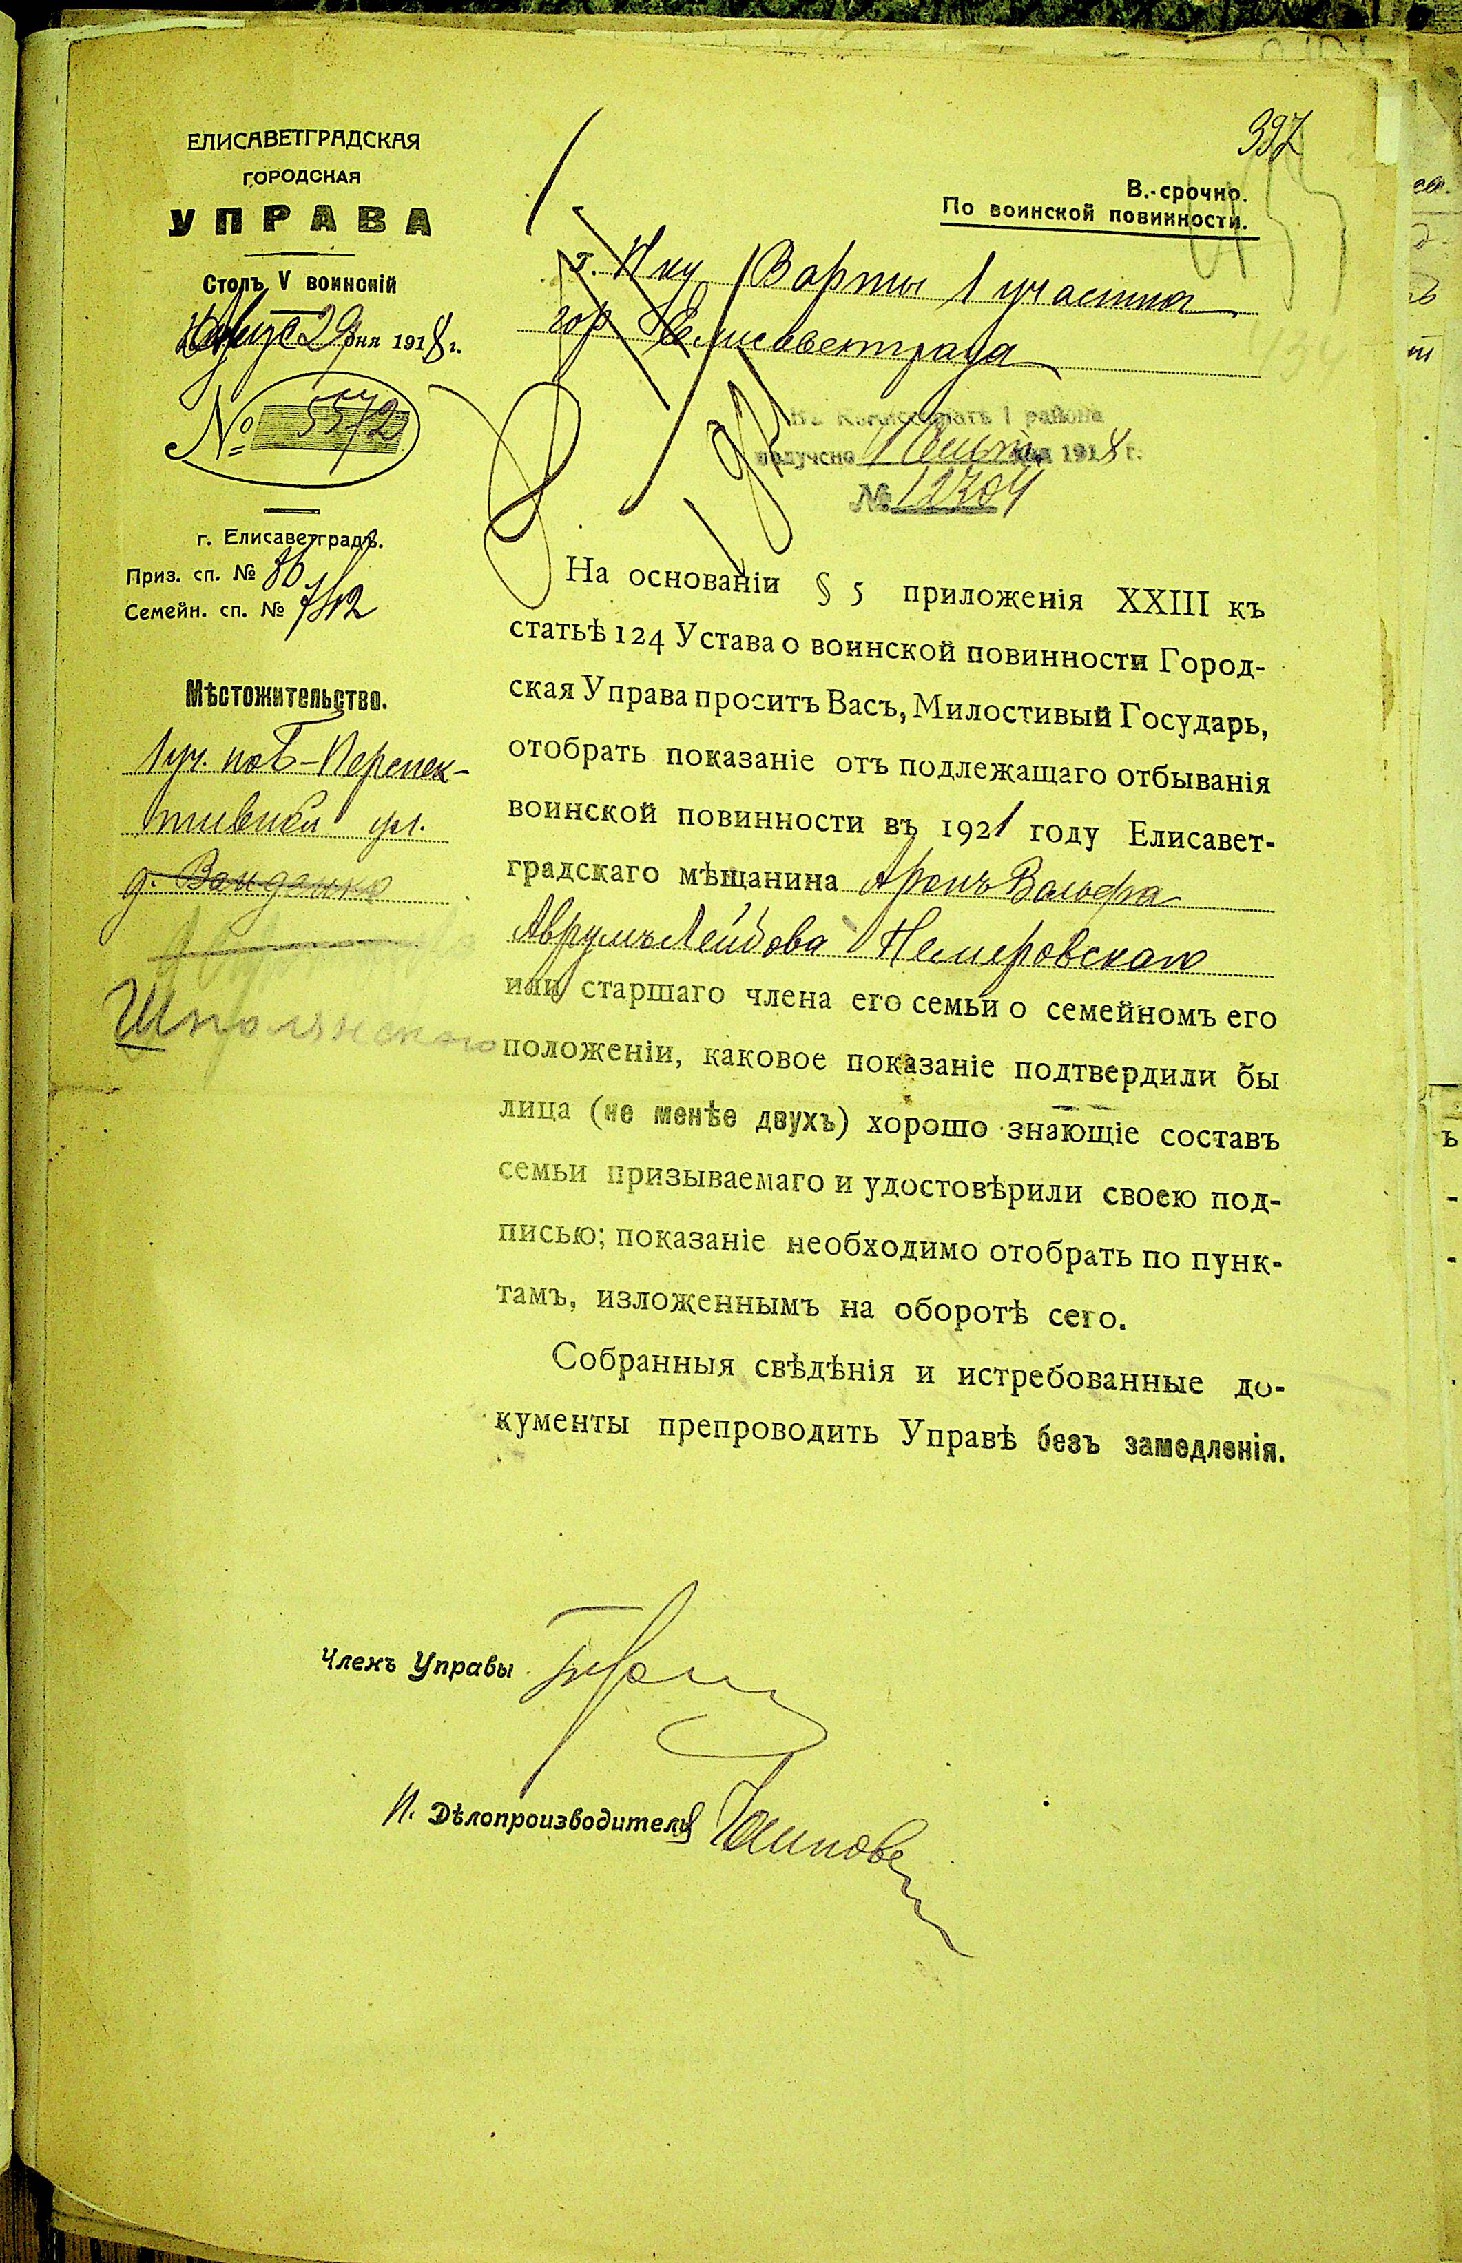 397
ЕЛИСАВЕТГРАДСКАЯ
ГОРОДСКАЯ
УПРАВА
Столъ V воинскій
29 дня 1918 г.
№ 5572
г. Елисаветградъ.
Приз. сп. № 86
Семейн. сп. №
Мѣстожительство.
1 уч. Перспек-
тивной ул.
д.
Шполянскаго
В.-срочно.
По воинской повинности.
г. Нку Варты 1 участка
гор Елисаветграда
Въ Комиссариатъ 1 района
получено 1918 г.
№ 12704
На основаніи § 5 приложенія XXIII къ
статьѣ 124 Устава о воинской повинности Город-
ская Управа проситъ Васъ, Милостивый Государь,
отобрать показаніе отъ подлежащаго отбыванія
воинской повинности въ 1921 году Елисавет-
градскаго мѣщанина Аронъ Вольфа
Аврумъ Лейбова Немировскаго
или старшаго члена его семьи о семейномъ его
положеніи, каковое показаніе подтвердили бы
лица (не менѣе двухъ) хорошо знающіе составъ
семьи призываемаго и удостовѣрили своею под-
писью; показаніе необходимо отобрать по пунк-
тамъ, изложеннымъ на оборотѣ сего.
Собранныя свѣдѣнія и истребованные до-
кументы препроводить Управѣ безъ замедленія.
Членъ Управы
И. Дѣлопроизводителя